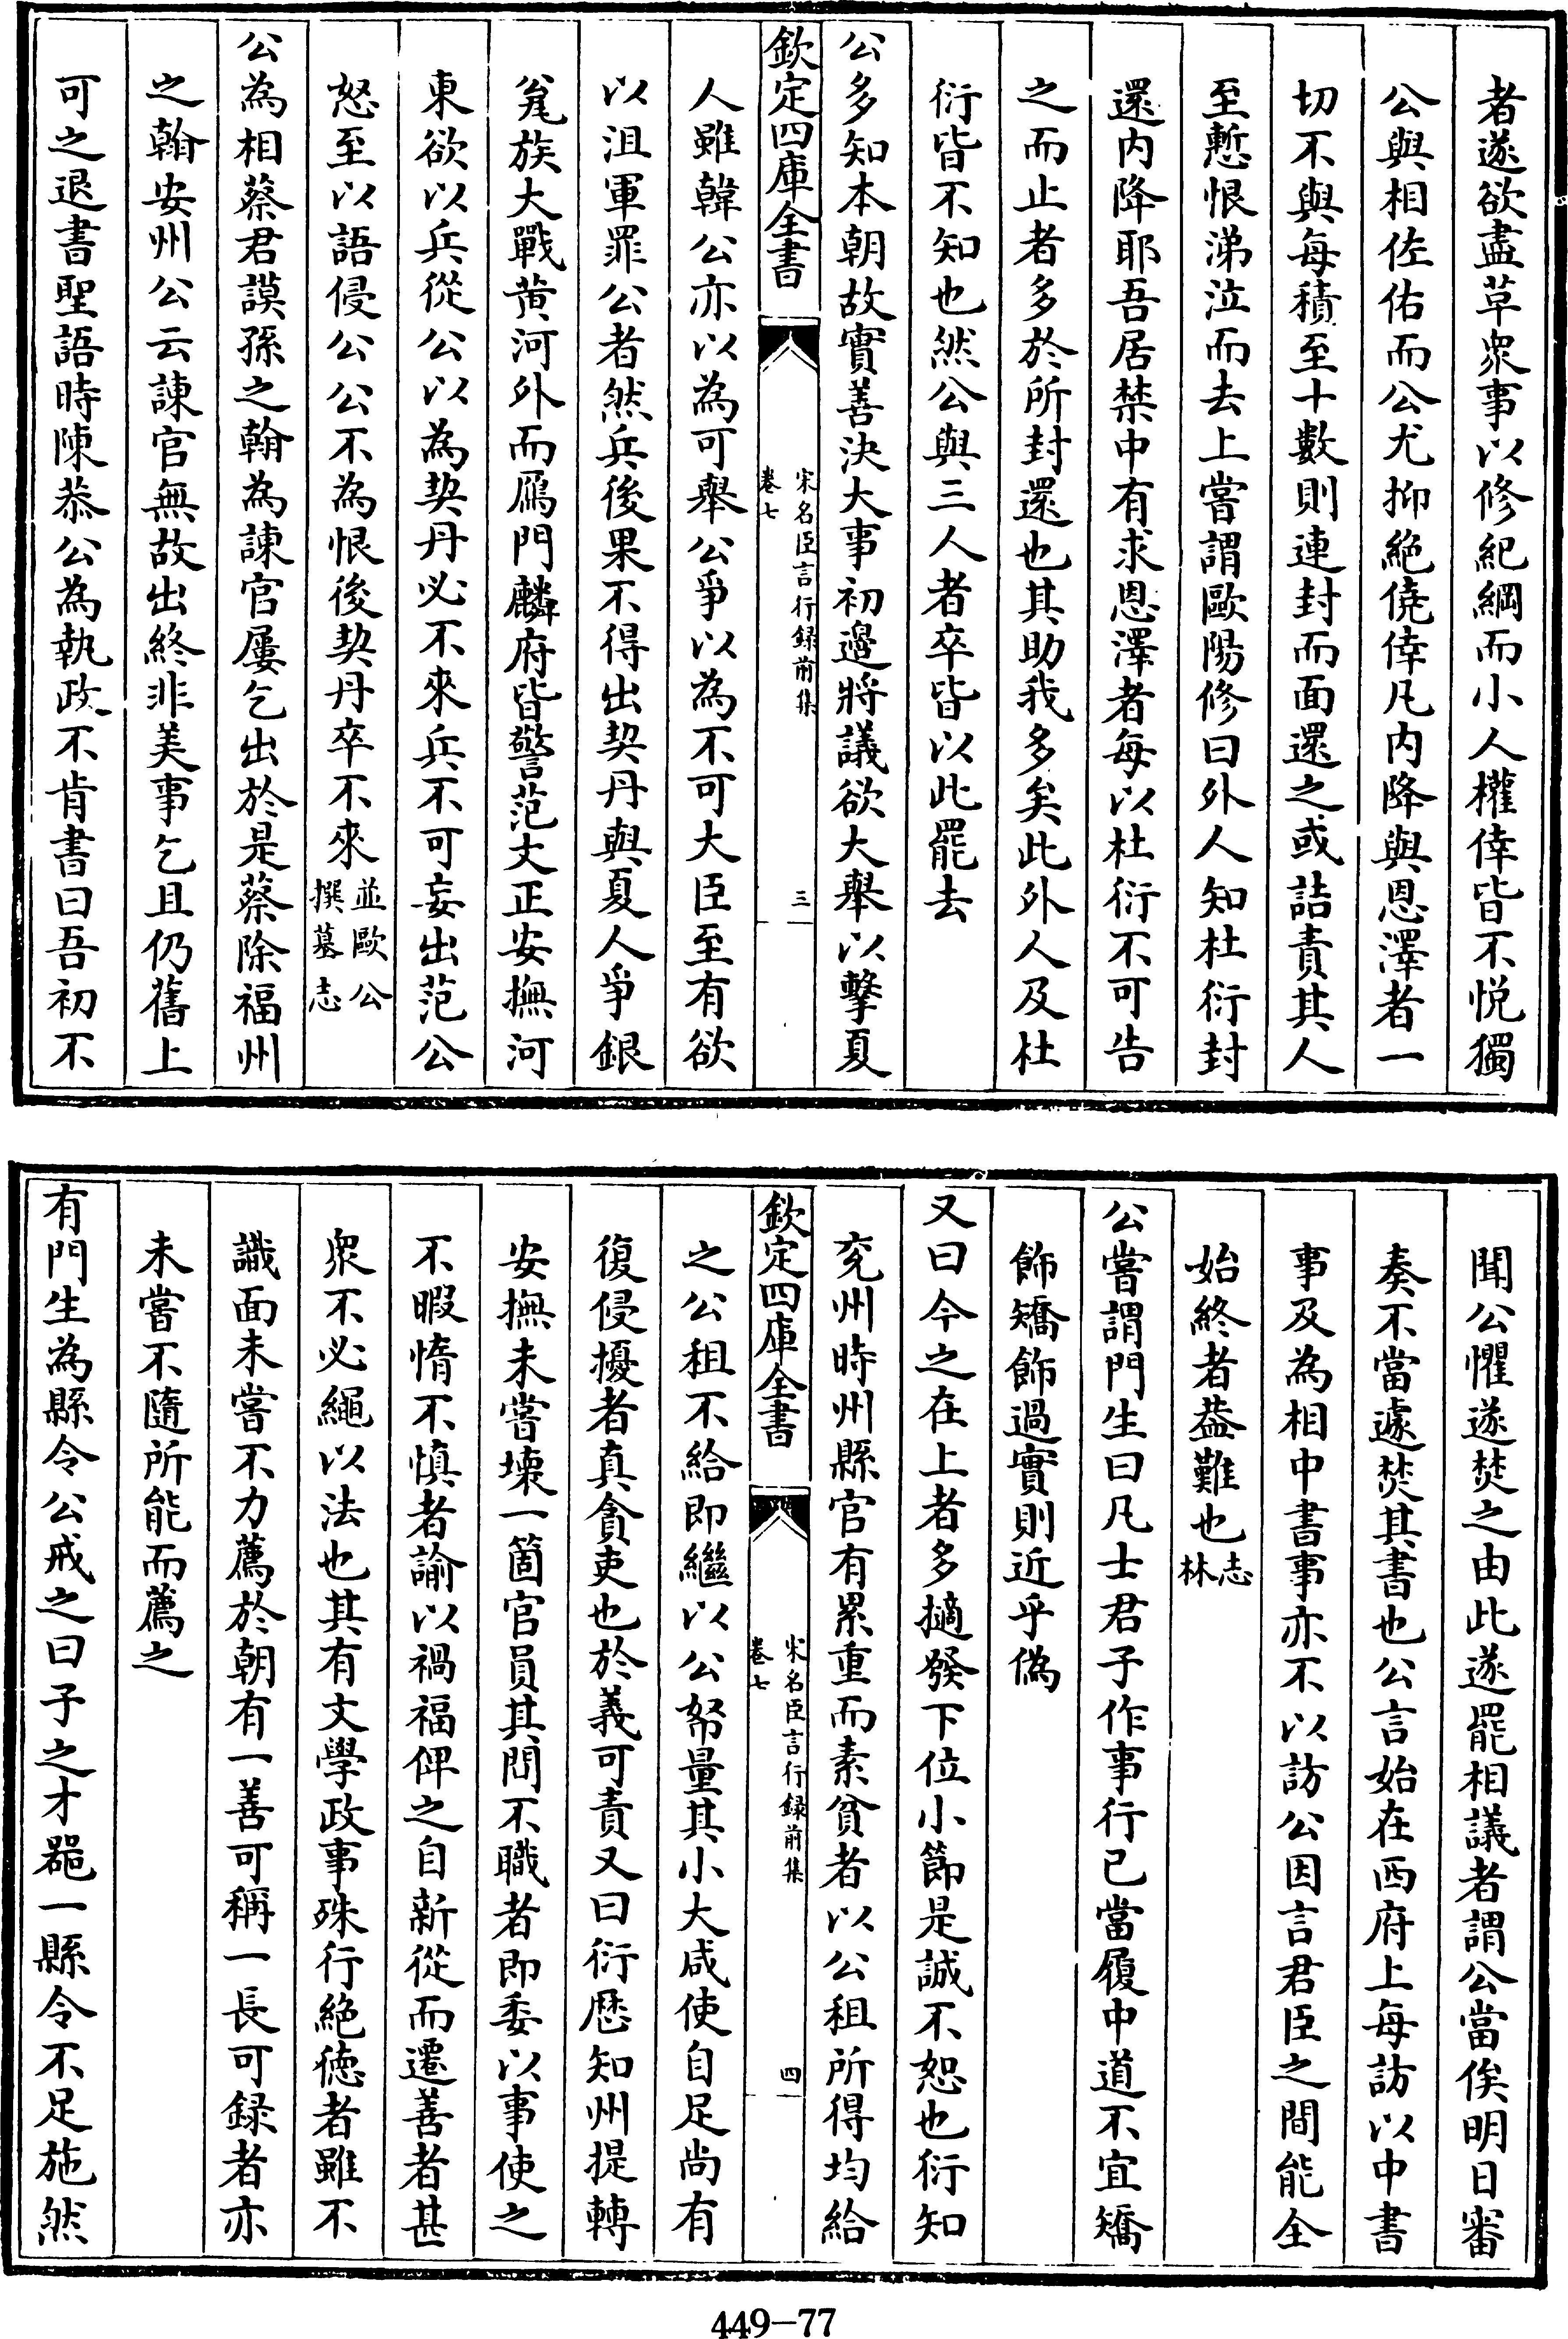 者遂欲盡革衆事以修紀綱而小人權倖皆不悅獨
公與相佐佑而公尤抑絶僥倖凡内降與恩澤者一
切不與每積至十數則連封而面還之或詰責其人
至慙恨涕泣而去上嘗謂歐陽修曰外人知杜衍封
還内降耶吾居禁中有求恩澤者每以杜衍不可告
之而止者多於所封還也其助我多矣此外人及杜
衍皆不知也然公與三人者卒皆以此罷去
公多知本朝故實善決大事初邊將議欲大舉以擊夏
欽定四庫全書
宋名臣言行録前集
卷七
三
人雖韓公亦以為可舉公爭以為不可大臣至有欲
以沮軍罪公者然兵後果不得出契丹與夏人爭銀
瓮族大戰黄河外而鴈門麟府皆警范文正安撫河
東欲以兵從公以為契丹必不來兵不可妄出范公
怒至以語侵公公不為恨後契丹卒不來並歐公撰墓志
公為相蔡君謨孫之翰為諫官屢乞出於是蔡除福州
之翰安州公云諫官無故出終非美事乞且仍舊上
可之退書聖語時陳恭公為執政不肯書曰吾初不
聞公懼遂焚之由此遂罷相議者謂公當俟明日審
奏不當遽焚其書也公言始在西府上每訪以中書
事及為相中書事亦不以訪公因言君臣之間能全
始終者葢難也志林
公嘗謂門生曰凡士君子作事行已當履中道不宜矯
飾矯飾過實則近乎偽
又曰今之在上者多擿發下位小節是誠不恕也衍知
兖州時州縣官有累重而素貧者以公租所得均給
欽定四庫全書
宋名臣言行録前集
卷七
四
之公租不給即繼以公帑量其小大咸使自足尚有
復侵擾者真貪吏也於義可責又曰衍歴知州提轉
安撫未嘗壞一箇官員其間不職者即委以事使之
不暇惰不慎者諭以禍福俾之自新從而遷善者甚
衆不必繩以法也其有文學政事殊行絶徳者雖不
識面未嘗不力薦於朝有一善可稱一長可録者亦
未嘗不隨所能而薦之
有門生為縣令公戒之曰子之才噐一縣令不足施然
449-77